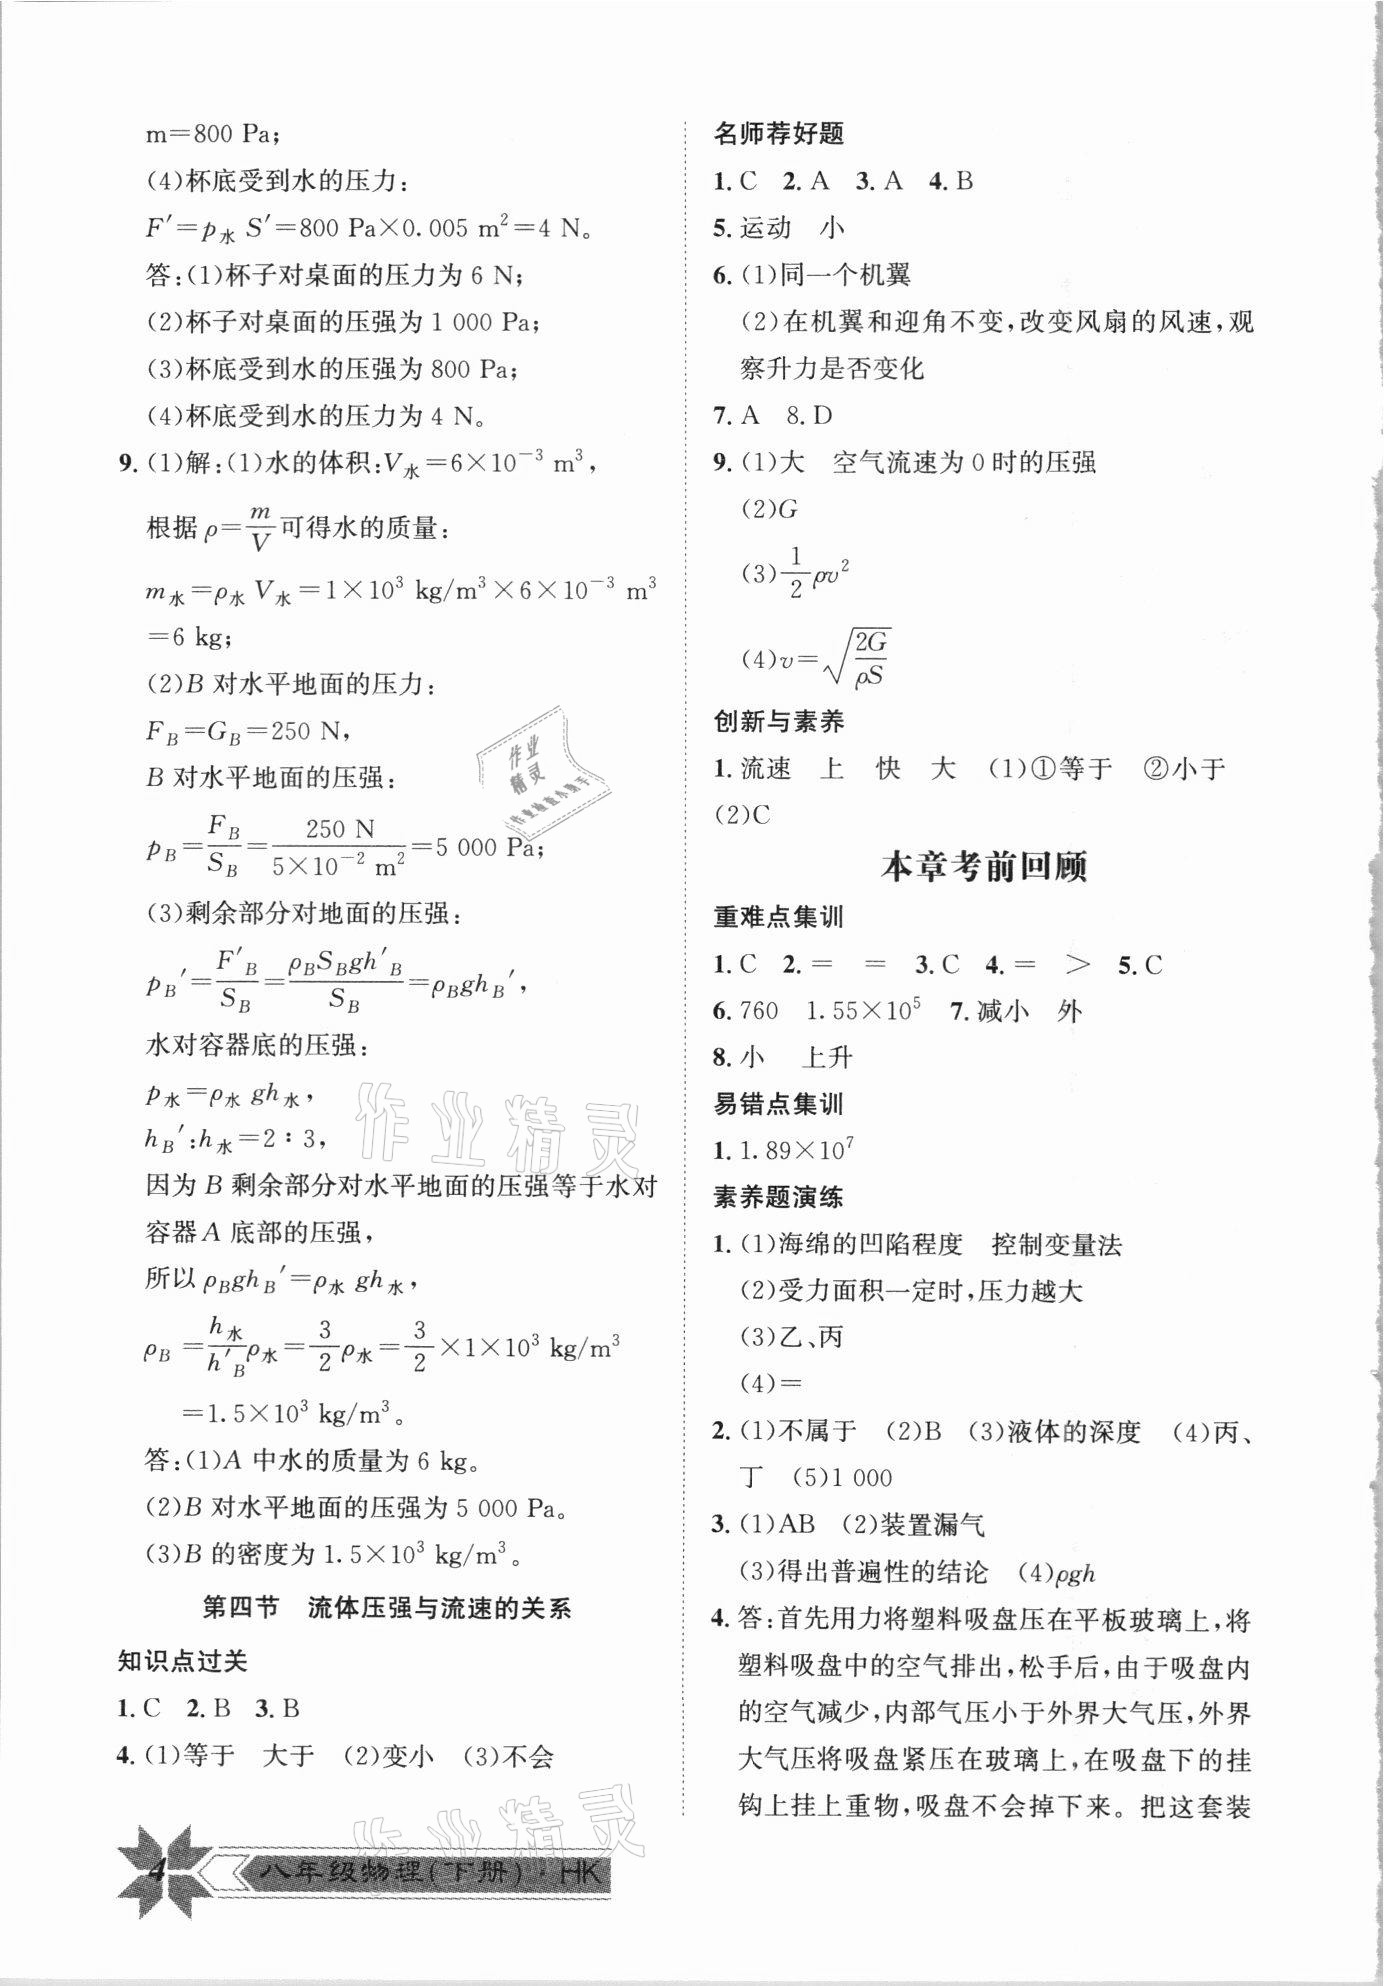 m=800 Pa;
(4)杯底受到水的压力:
F′=p水 S′=800 Pa×0.005 m²=4 N。
答:(1)杯子对桌面的压力为 6 N;
(2)杯子对桌面的压强为 1 000 Pa;
(3)杯底受到水的压强为 800 Pa;
(4)杯底受到水的压力为 4 N。
9.(1)解:(1)水的体积:V水=6×10⁻³ m³,
根据 ρ=m/V可得水的质量:
m水=ρ水 V水=1×10³ kg/m³×6×10⁻³ m³
=6 kg;
(2)B 对水平地面的压力:
F_B=G_B=250 N,
B 对水平地面的压强:
p_B=F_B/S_B=250 N/(5×10⁻² m²)=5 000 Pa;
(3)剩余部分对地面的压强:
p_B′=F′_B/S_B=ρ_BS_Bgh′_B/S_B=ρ_Bgh_B′,
水对容器底的压强:
p水=ρ水 gh水,
h_B′:h水=2∶3,
因为 B 剩余部分对水平地面的压强等于水对
容器 A 底部的压强,
所以 ρ_Bgh_B′=ρ水 gh水,
ρ_B=h水/h′_B ρ水=3/2 ρ水=3/2×1×10³ kg/m³
=1.5×10³ kg/m³。
答:(1)A 中水的质量为 6 kg。
(2)B 对水平地面的压强为 5 000 Pa。
(3)B 的密度为 1.5×10³ kg/m³。
第四节 流体压强与流速的关系
知识点过关
1.C 2.B 3.B
4.(1)等于 大于 (2)变小 (3)不会
名师荐好题
1.C 2.A 3.A 4.B
5.运动 小
6.(1)同一个机翼
(2)在机翼和迎角不变,改变风扇的风速,观
察升力是否变化
7.A 8.D
9.(1)大 空气流速为 0 时的压强
(2)G
(3)1/2 ρv²
(4)v=√(2G/ρS)
创新与素养
1.流速 上 快 大 (1)①等于 ②小于
(2)C
本章考前回顾
重难点集训
1.C 2.= = 3.C 4.= > 5.C
6.760 1.55×10⁵ 7.减小 外
8.小 上升
易错点集训
1.1.89×10⁷
素养题演练
1.(1)海绵的凹陷程度 控制变量法
(2)受力面积一定时,压力越大
(3)乙、丙
(4)=
2.(1)不属于 (2)B (3)液体的深度 (4)丙、
丁 (5)1 000
3.(1)AB (2)装置漏气
(3)得出普遍性的结论 (4)ρgh
4.答:首先用力将塑料吸盘压在平板玻璃上,将
塑料吸盘中的空气排出,松手后,由于吸盘内
的空气减少,内部气压小于外界大气压,外界
大气压将吸盘紧压在玻璃上,在吸盘下的挂
钩上挂上重物,吸盘不会掉下来。把这套装
4 八年级物理(下册)·HK
作业精灵
作业精灵
作业
精灵